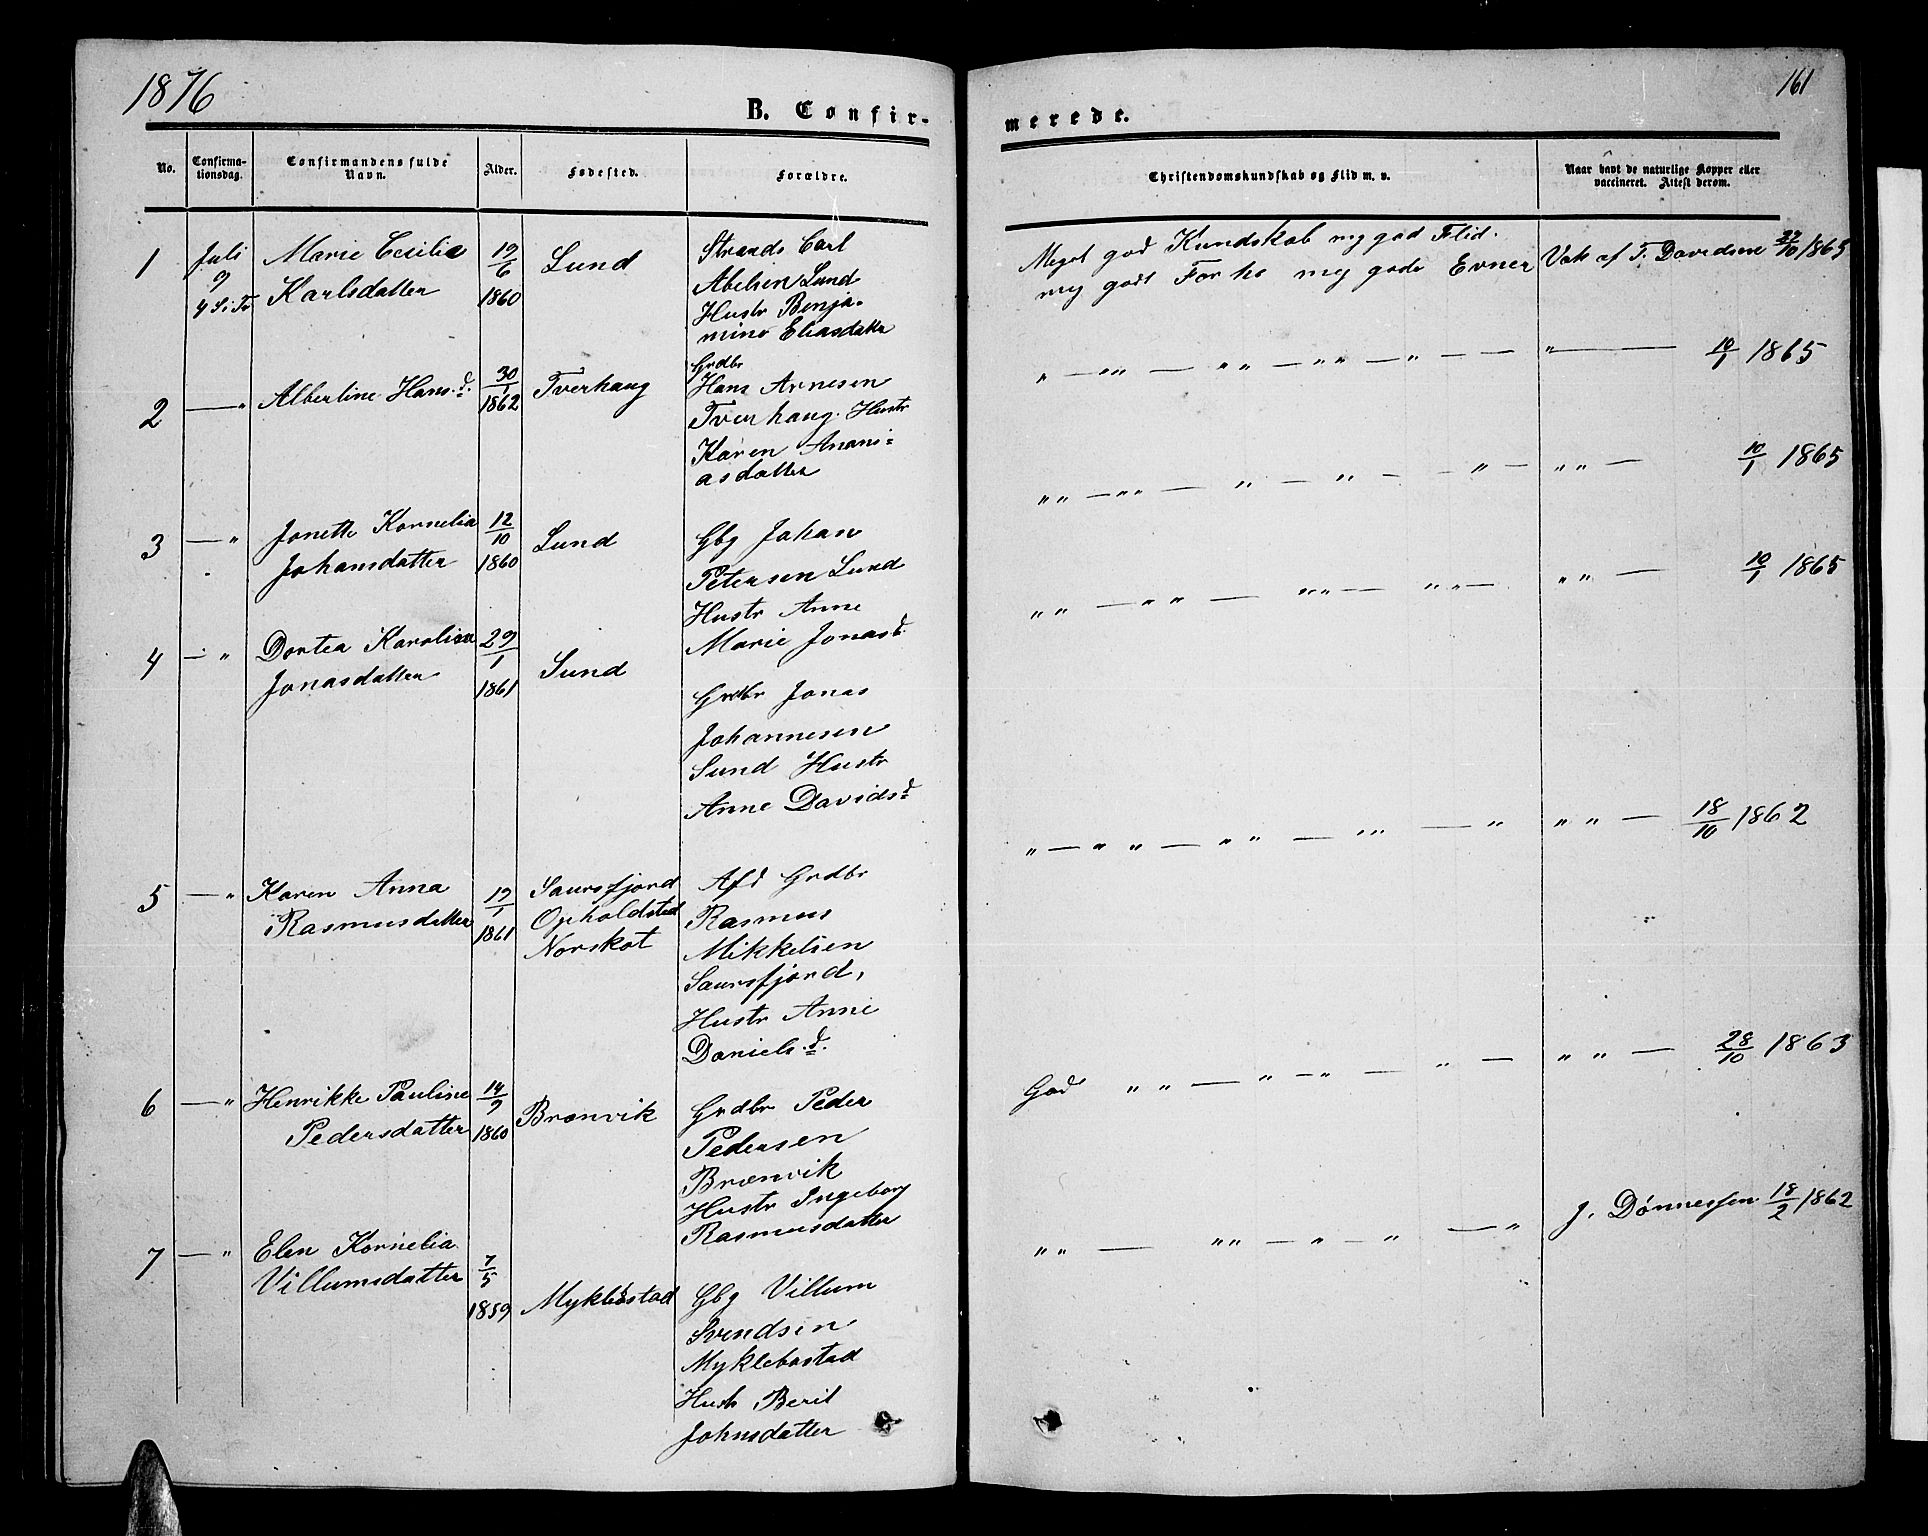 1876
161
B. Confirmerede.
No. Confirmationsdag. Confirmandens fulde Navn. Alder. Fødested. Forældre. Christendomskundskab og Flid m. v. Naar havt de naturlige Kopper eller vaccineret. Attest derom.
1 Juli 9 4 S. i Tr Marie Cecilie Karlsdatter 19/6 1860 Lund
Strands Carl
Abelsen Lund
Hustr Benja-
mine Eliasdatter
Meget god Kundskab meg god Flid.
meg godt Forho meg gode Evner
Vak af T. Davidsen 22/10 1865
2 — " Albertine Hans. d. 30/1 1862 Tverhaug
Grdbr
Hans Arnesen
Tverhaug. Hustr
Karen Anani-
asdatter
" — "" — " " — "" — " — — " — 10/1 1865
3 — " Jonette Kornelia Johansdatter 12/10 1860 Lund
Gbg Johan
Petersen Lund
Hustr Anne
Marie Jonasd.
" " — "" — " — " — " — " " — 10/1 1865
4 — " Dortea Karolina Jonasdatter 29/1 1861 Sund
Grdbr Jonas
Johannesen
Sund Hustr
Anne Davidsd
" " — " " — "" — " " — " " — 10/1 1865
5 — " Karen Anna Rasmusdatter 19/1 1861
Saursfjord
Opholdsted
Norskot
Afd Grdbr
Rasmus
Mikkelsen
Saursfjord,
Hustr Anne
Daniels. d.
" — " " — " " — " " — " " " — 18/10 1862
6 — " Henrikke Pauline Pedersdatter 14/9 1860 Brænvik
Grdbr Peder
Pedersen
Brænvik
Hustr Ingeborg
Rasmusdatter
God " " — " — " — " — " " — 28/10 1863
7 — " Elen Kornelia Villumsdatter 7/5 1859 Myklebostad
Gbg Villum
Svendsen
Myklebostad
Hustr Beril
Johnsdatter
" " — "" — " — " — " J. Dønnessen 18/2 1862